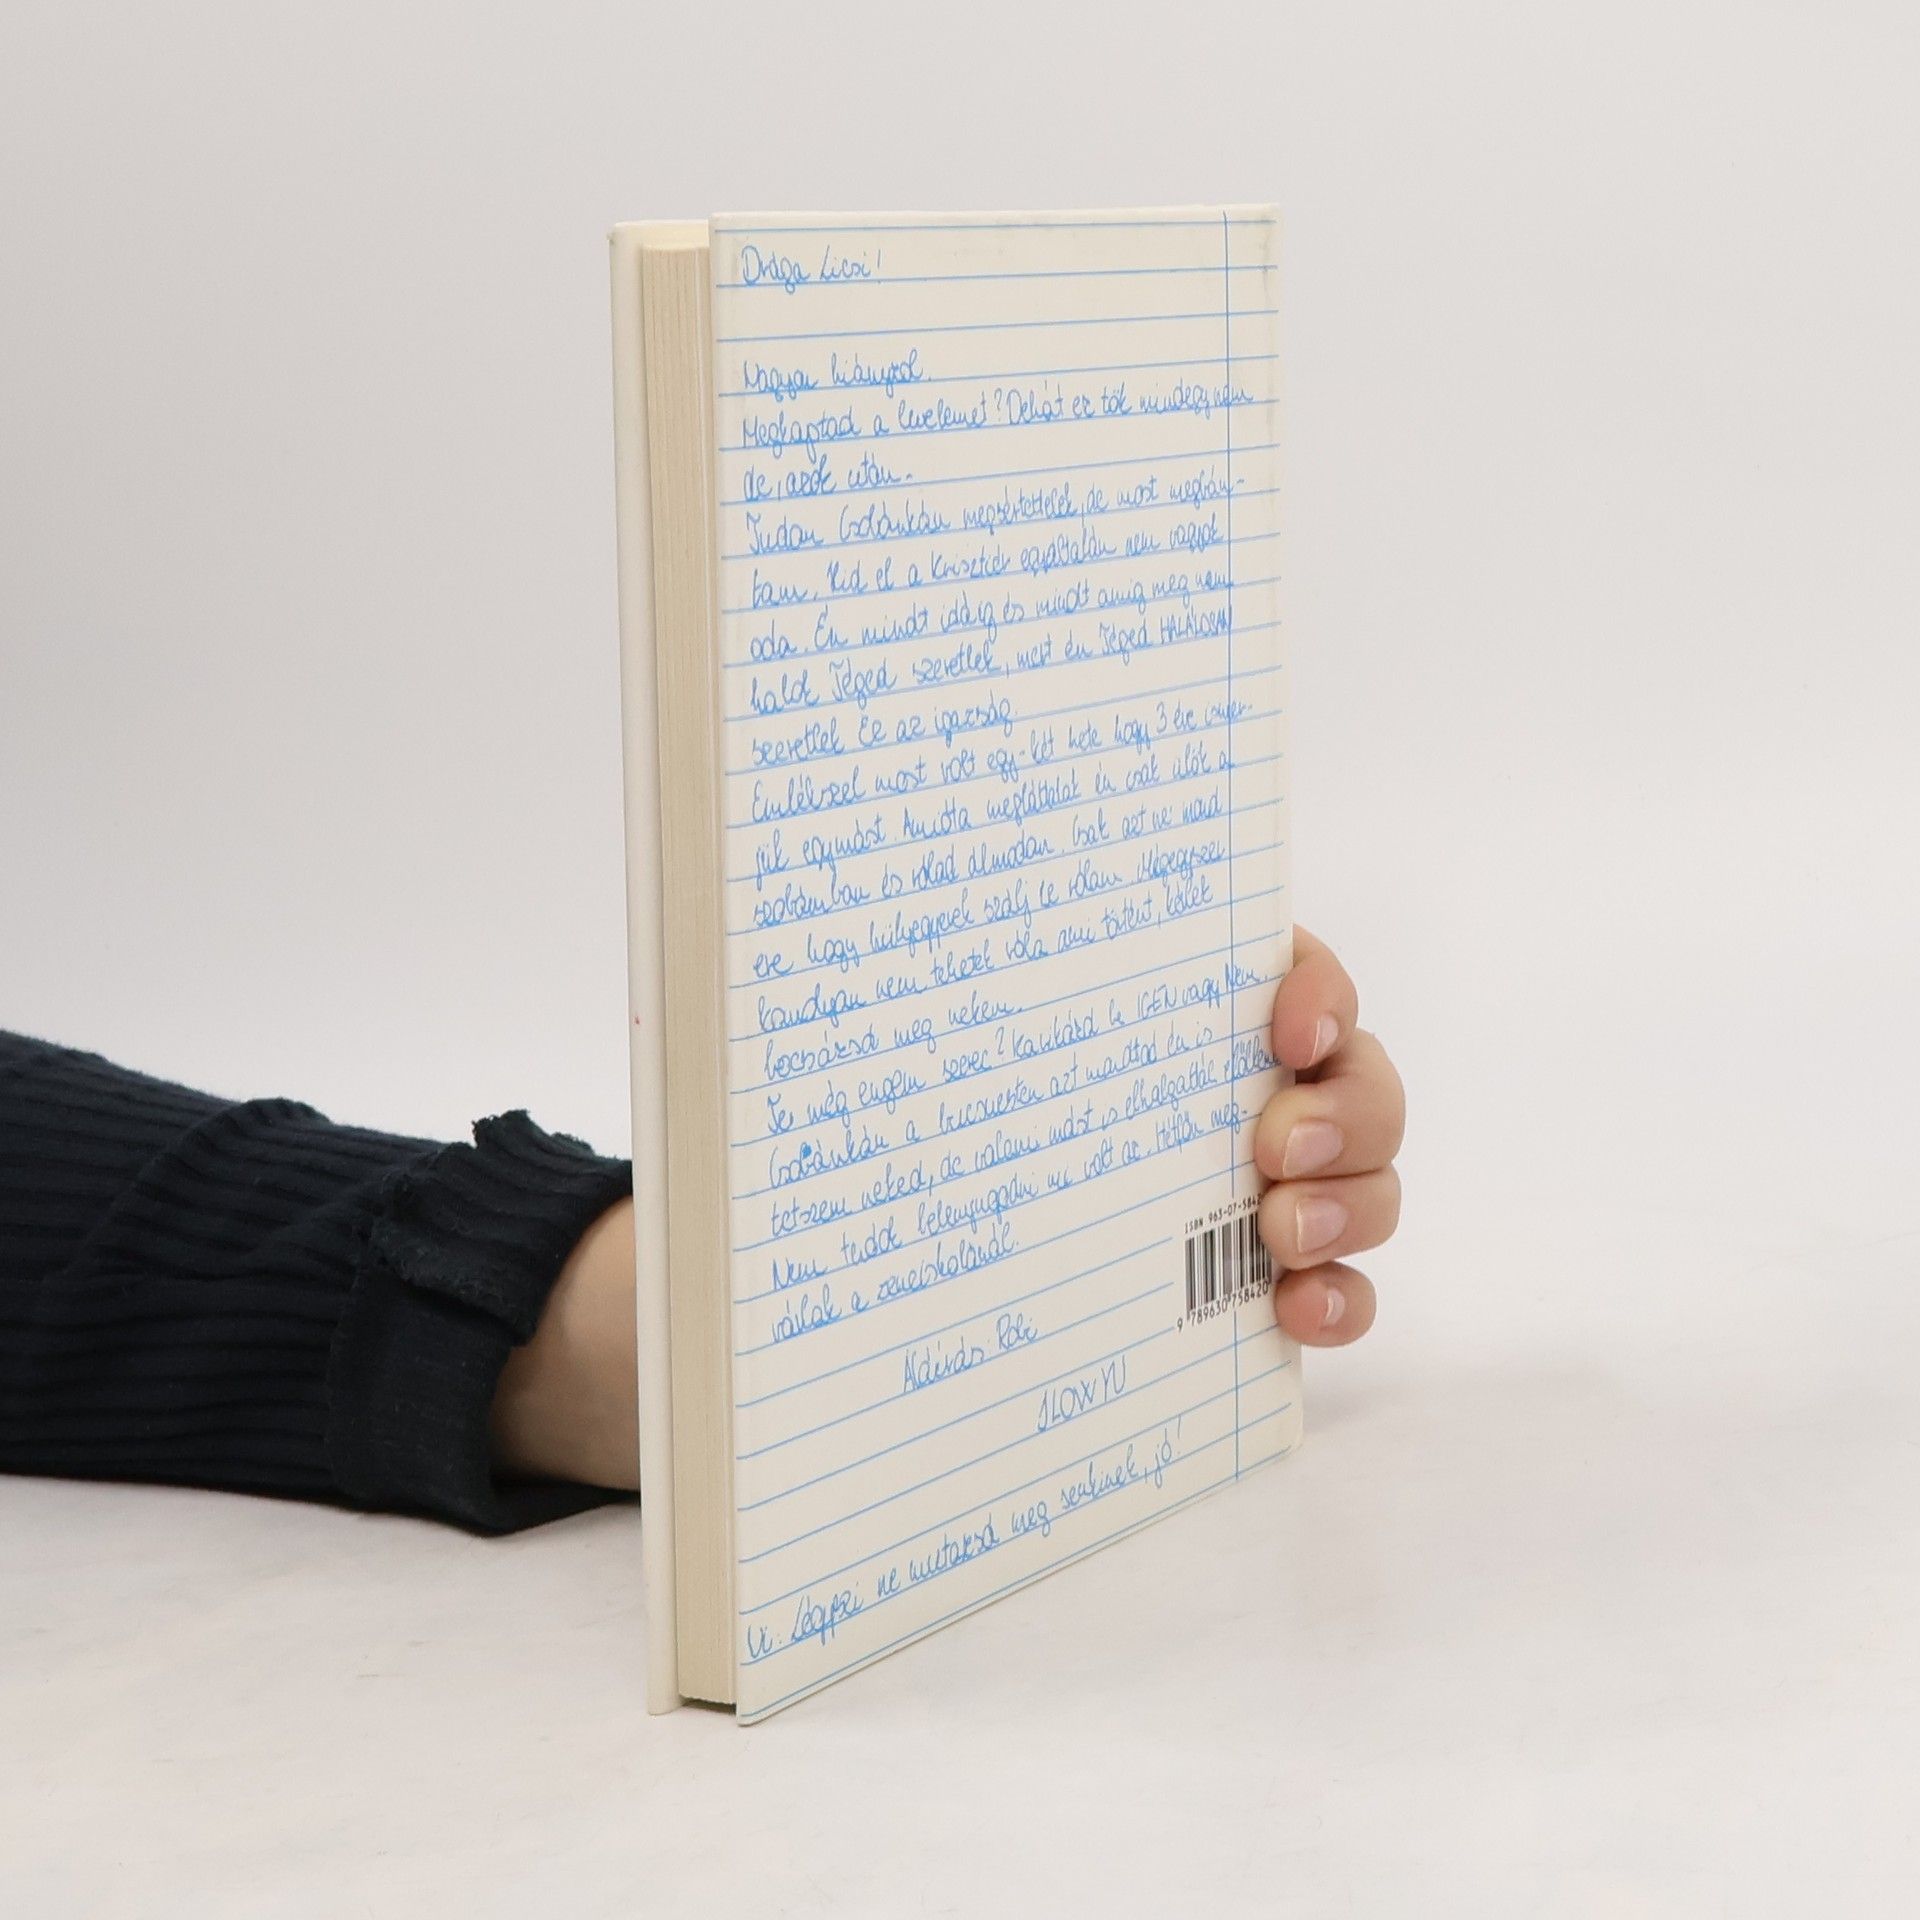 Drága Licsi!
Nagyon hiányzol.
Megkaptad a levelemet? Dehát ez tök mindegy nem
de, azok után.
Tudom Csobánkán megsértettelek, de most megbán-
tam. Hid el a Krisztiér egyáltalán nem vagyok
oda. Én mindt iddig és mindt amig meg nem
halok Téged szeretlek, mert én Téged HALÁLOSAN
szeretlek Ez az igazság.
Emlékszel most volt egy-két hete hogy 3 éve ismer-
jük egymást. Amióta megláttalak én csak ülök a
szobámban és rólad álmodom. Csak azt ne mond
erre hogy hülyegyerek szálj le rólam. Mégegyszer
komolyan nem tehetek róla ami történt, kérlek
bocsázsd meg nekem.
Te még engem szerec? Karikázd be IGEN vagy Nem.
Csobánkán a bucsuesten azt mondtad én is
tetszem neked, de valami mást is elhalgattál előllem
Nem tudok belenyugodni mi volt az. Hétfőn meg-
várlak a zeneiskolánál.
Aláírás: Robi
SLOW YU
Ui: Légyszi ne mutazsd meg senkinek, jó!
ISBN 963-07-5842
9 789630 758420